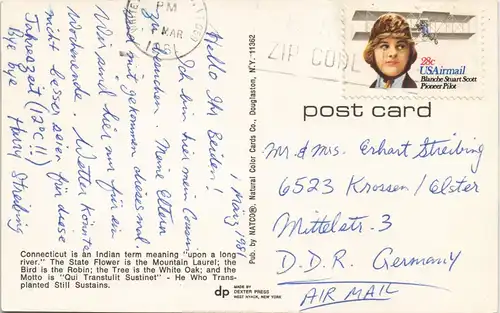 PM
MAR
1981
ZIP CODE
28c
USAirmail
Blanche Stuart Scott
Pioneer Pilot
post card
1 März 1981
Hello Ihr Beiden!
Ich bin hier mein Cousin
zu besuchen. Meine Eltern
sind mitgekommen diesesmal.
Wir sind hier nur für ein
Wochenende. Wetter konnte
nicht besser sein für diese
Jahreszeit (12°C!!)
Bye bye Harry Streibing
Mr & Mrs. Erhart Streibing
6523 Krossen/Elster
Mittelstr. 3
D.D.R. Germany
AIR MAIL
Connecticut is an Indian term meaning "upon a long
river." The State Flower is the Mountain Laurel; the
Bird is the Robin; the Tree is the White Oak; and the
Motto is "Qui Transtulit Sustinet" - He Who Trans-
planted Still Sustains.
Pub. by NATCO®. Natural Color Cards Co., Douglaston, N.Y. 11362
dp
MADE BY
DEXTER PRESS
WEST NYACK, NEW YORK